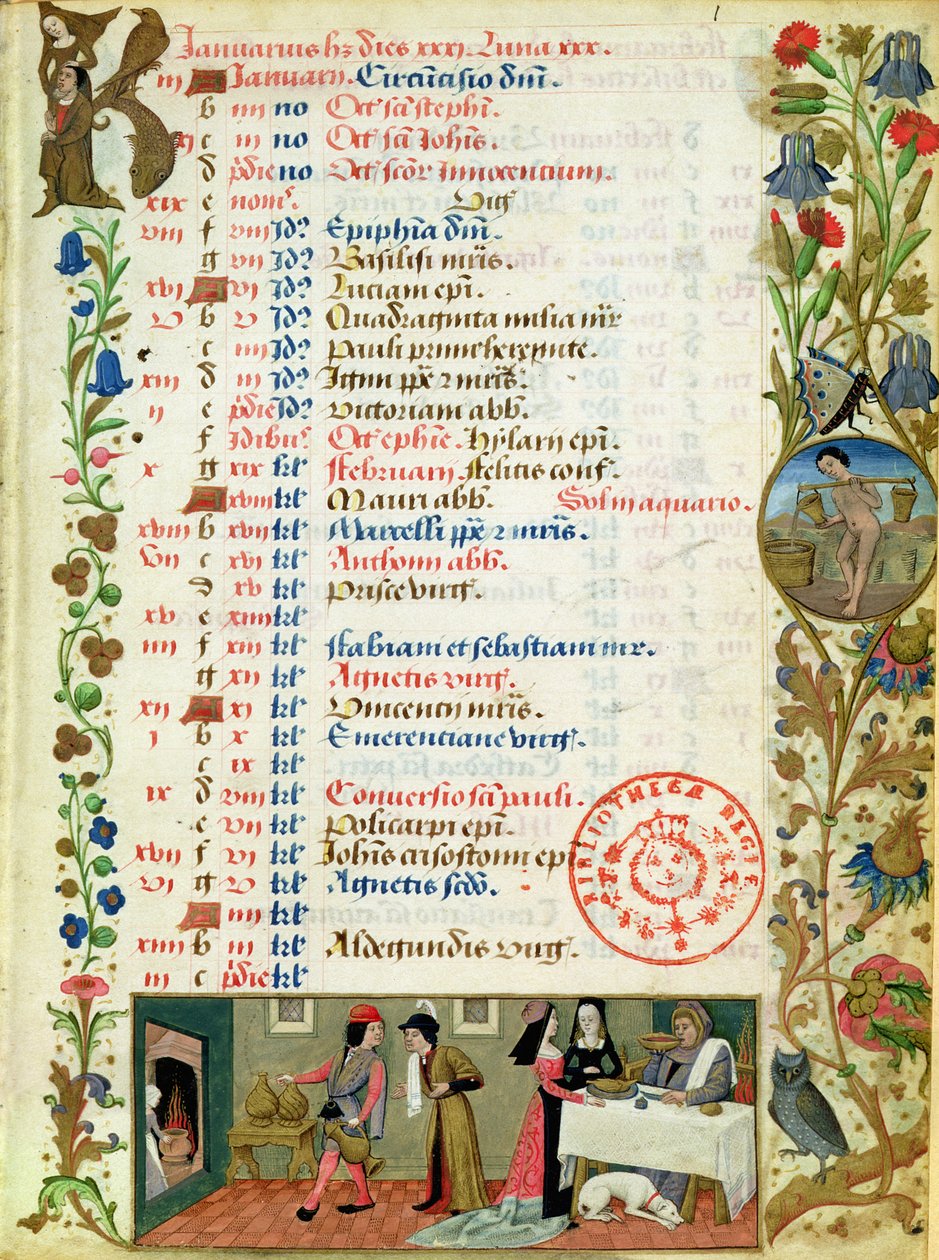 1
Januarius hz dies xxxi. Luna xxx.
iii A Januarii. Circūcisio dm̄.
b iiii no Oct̄ sc̄i stephī.
xi c iii no Oct̄ sc̄i Iohīs.
d p̄die no Oct̄ sc̄or̄ Innocencium.
xix e nonꝰ. Vigꝭ.
viii f viii Jdꝰ Epiphīa dm̄.
g vii Jdꝰ Basilisi mr̄is.
xvi A vi Jdꝰ Luciani ep̄i.
v b v Jdꝰ Quadraginta milia mr̄
c iiii Jdꝰ Pauli prime heremite.
xiii d iii Jdꝰ Igini pp̄e 2 mr̄is.
ii e p̄die Jdꝰ Victoriani abb̄.
f Idibꝰ. Oct̄ ephīe. hylarii ep̄i.
x g xix kl̄ februarii felicis conf̄.
A xviii kl̄ Mauri abb̄. Sol in aquario.
xviii b xvii kl̄ Marcelli pp̄e 2 mr̄is.
vii c xvi kl̄ Anthonii abb̄.
d xv kl̄ Prisce virgꝭ.
xv xiiii kl̄
iiii f xiii kl̄ fabiani et sebastiani mr̄.
g xii kl̄ Agnetis virgꝭ.
xii A xi kl̄ Vincencii mr̄is.
i b x kl̄ Emerenciane virgꝭ.
c ix kl̄
ix d viii kl̄ Conversio sc̄i pauli.
e vii kl̄ Policarpi ep̄i.
xvii f vi kl̄ Iohīs crisostomi ep̄i
vi g v kl̄ Agnetis scd̄o.
A iiii kl̄
xiiii b iii kl̄ Aldegundis virgꝭ.
iii c p̄die kl̄
BIBLIOTHECÆ REGIÆ